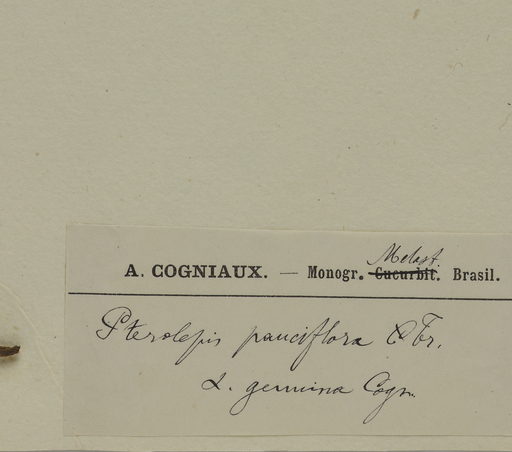 Melast.
A. COGNIAUX. — Monogr. Cucurbit. Brasil.
Pterolepis pauciflora Tr.
α. genuina Cogn.